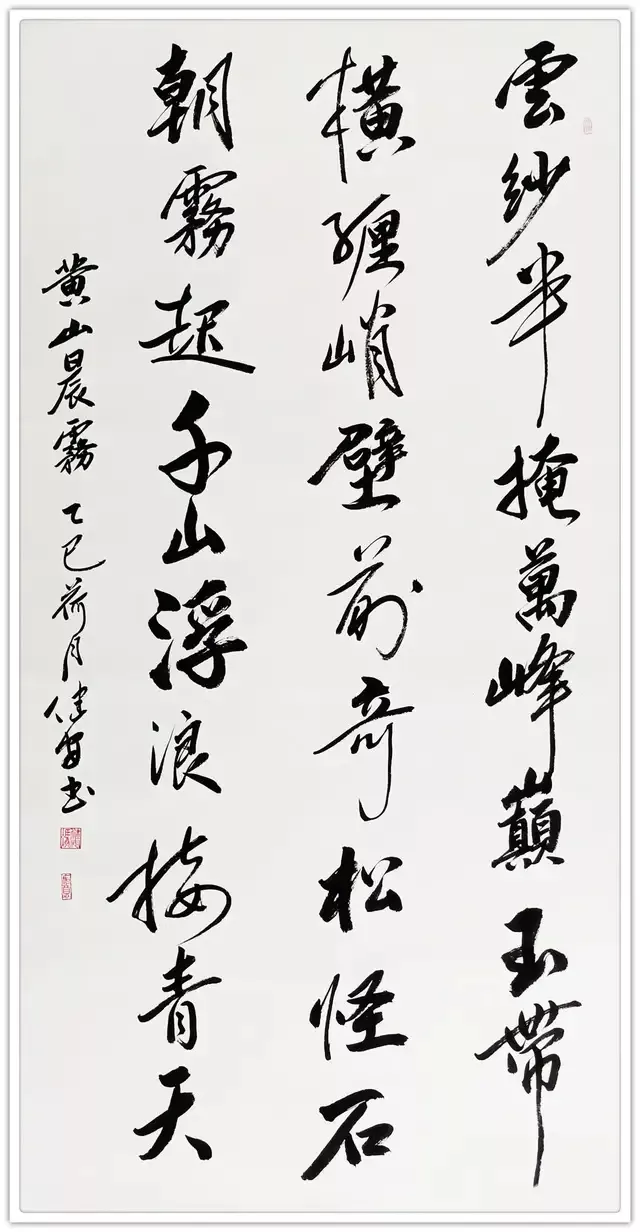 雲紗半掩萬峰巔玉帶
橫纏峭壁前奇松怪石
朝霧起千山浮浪接青天
黄山晨霧 乙巳荷月健安书